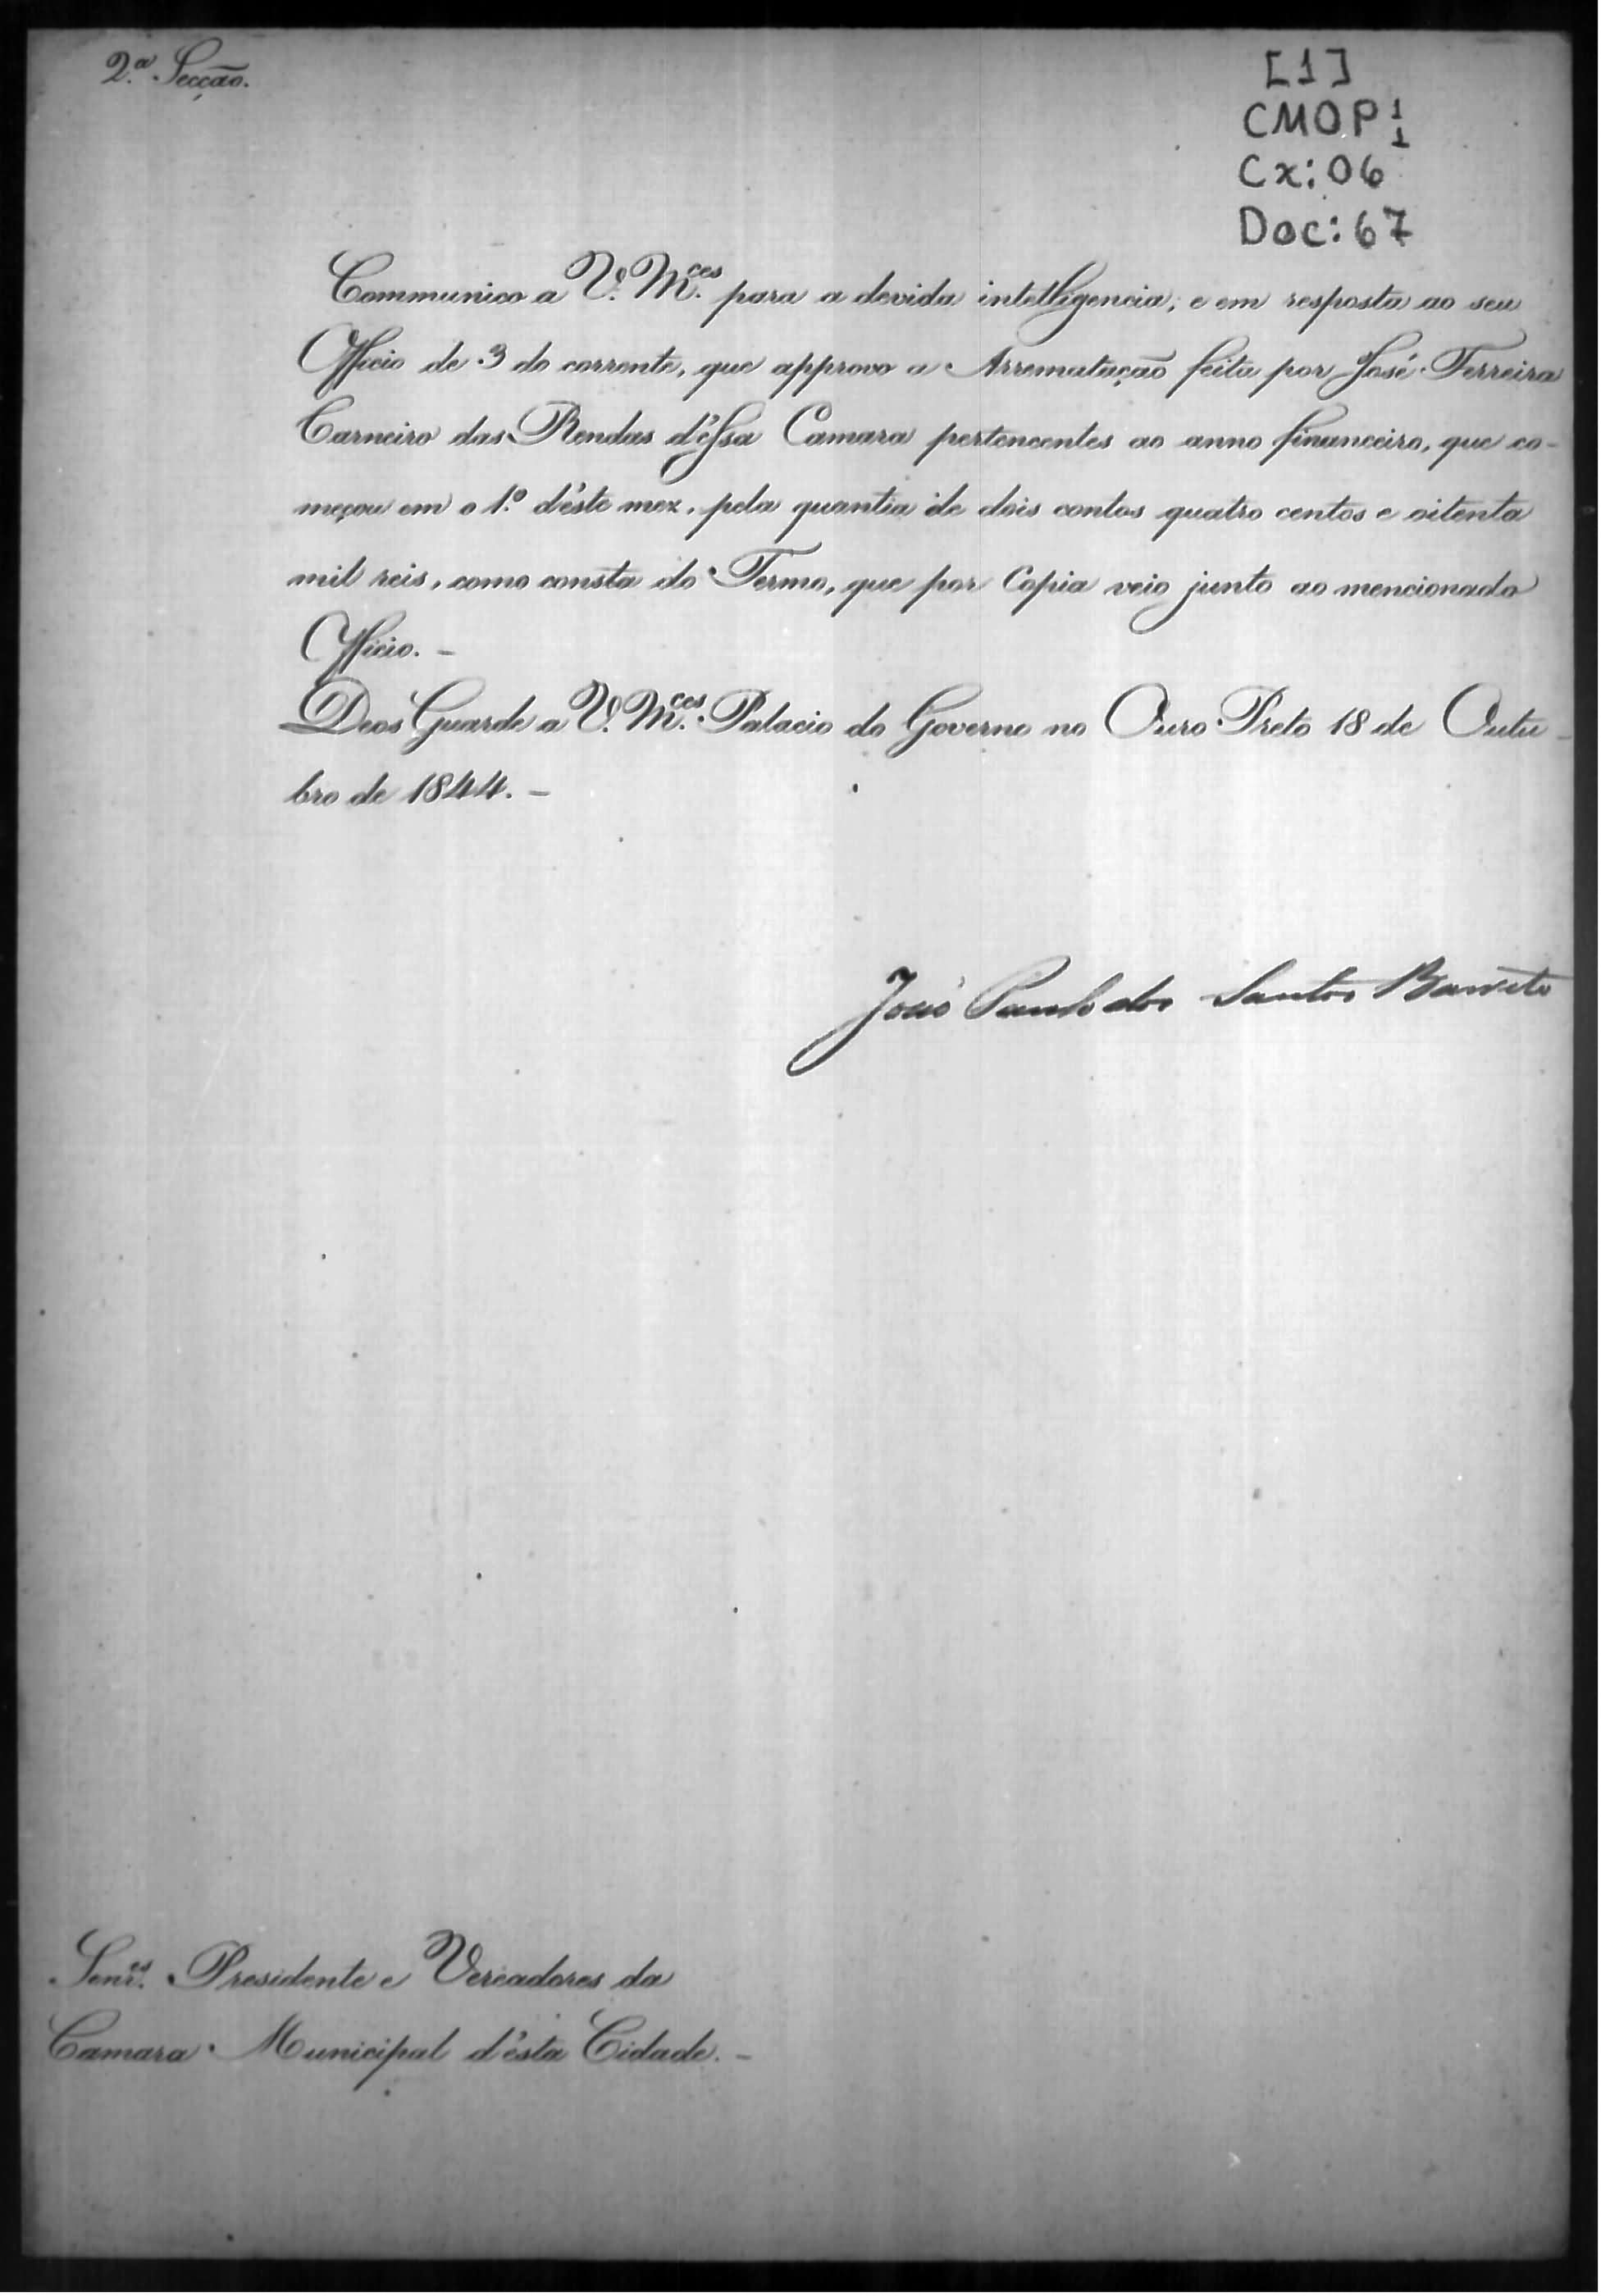 2.ª Secção.
[1]
CMOP 1/1
Cx: 06
Doc: 67
Communico a V. M.ces para a devida intelligencia, e em resposta ao seu
Officio de 3 do corrente, que approvo a Arrematação feita por José Ferreira
Carneiro das Rendas d'éssa Camara pertencentes ao anno financeiro, que co-
meçou em o 1.º d'éste mez, pela quantia de dois contos quatro centos e oitenta
mil reis, como consta do Termo, que por Copia veio junto ao mencionado
Officio. -
Deos Guarde a V. M.ces Palacio do Governo no Ouro Preto 18 de Outu-
bro de 1844. -
João Paulo dos Santos Barreto
Senr.es Presidente e Vereadores da
Camara Municipal d'ésta Cidade. -